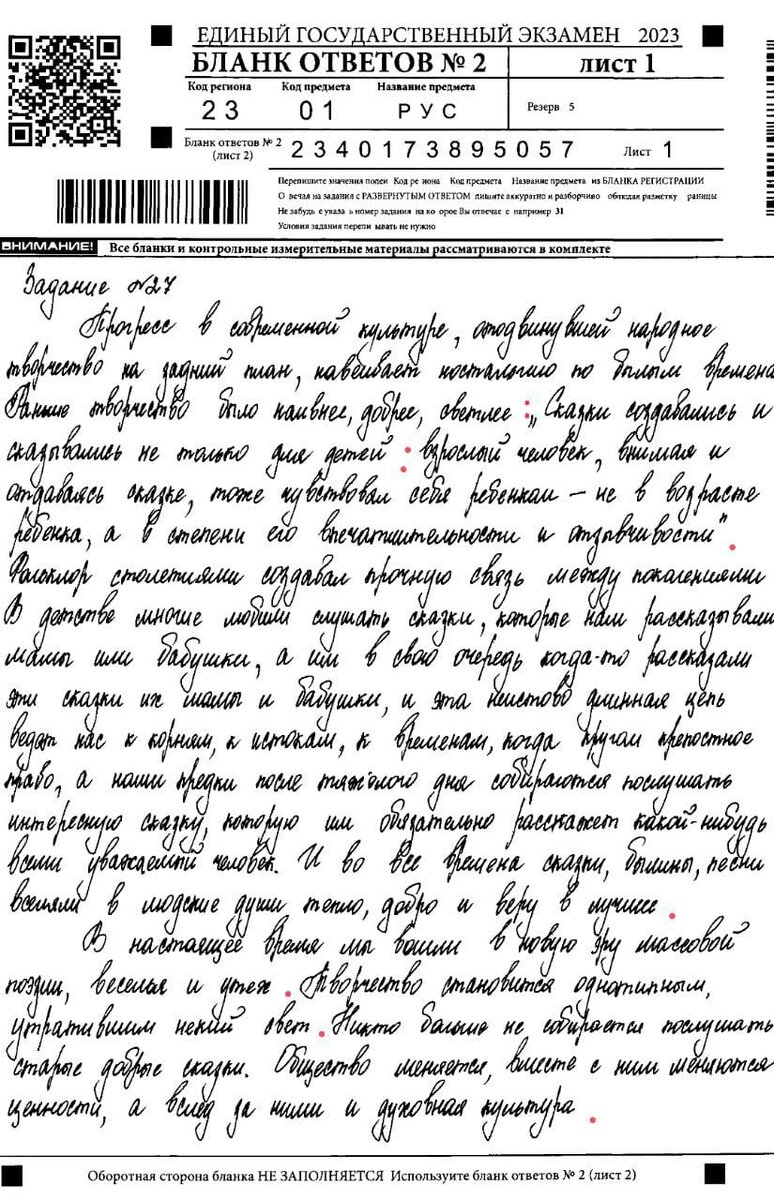 ЕДИНЫЙ ГОСУДАРСТВЕННЫЙ ЭКЗАМЕН 2023
БЛАНК ОТВЕТОВ № 2
лист 1
Код региона Код предмета Название предмета
23 01 РУС
Резерв 5
Бланк ответов № 2
(лист 2)
2340173895057
Лист 1
Перепишите значения полеи Код ре иона Код предмета Название предмета из БЛАНКА РЕГИСТРАЦИИ
О вечая на задания с РАЗВЕРНУТЫМ ОТВЕТОМ пишите аккуратно и разборчиво облюдая разметку раницы
Не забудь е указа ь номер задания на ко орое Вы отвечае е например 31
Условия задания перепи ывать не нужно
ВНИМАНИЕ!
Все бланки и контрольные измерительные материалы рассматриваются в комплекте
Задание №27
Прогресс в современной культуре, отодвинувшей народное
творчество на задний план, навеивает ностальгию по былым времена
Раньше творчество было наивнее, добрее, светлее: „Сказки создавались и
сказывались не только для детей: взрослый человек, внимая и
отдаваясь сказке, тоже чувствовал себя ребенком – не в возрасте
ребенка, а в степени его впечатлительности и отзывчивости".
Фольклор столетиями создавал прочную связь между поколениями
В детстве многие любили слушать сказки, которые нам рассказывали
мамы или бабушки, а им в свою очередь когда-то рассказали
эти сказки их мамы и бабушки, и эта неистово длинная цепь
ведет нас к корням, к истокам, к временам, когда кругом крепостное
право, а наши предки после тяжолого дня собираются послушать
интересную сказку, которую им обязательно расскажет какой-нибудь
всеми уважаемый человек. И во все времена сказки, былины, песни
вселяли в людские души тепло, добро и веру в лучшее.
В настоящее время мы вошли в новую эру массовой
поэзии, веселья и утех. Творчество становится однотипным,
утратившим некий свет. Никто больше не собирается послушать
старые добрые сказки. Общество меняется, вместе с ним меняются
ценности, а вслед за ними и духовная культура.
Оборотная сторона бланка НЕ ЗАПОЛНЯЕТСЯ Используите бланк ответов № 2 (лист 2)